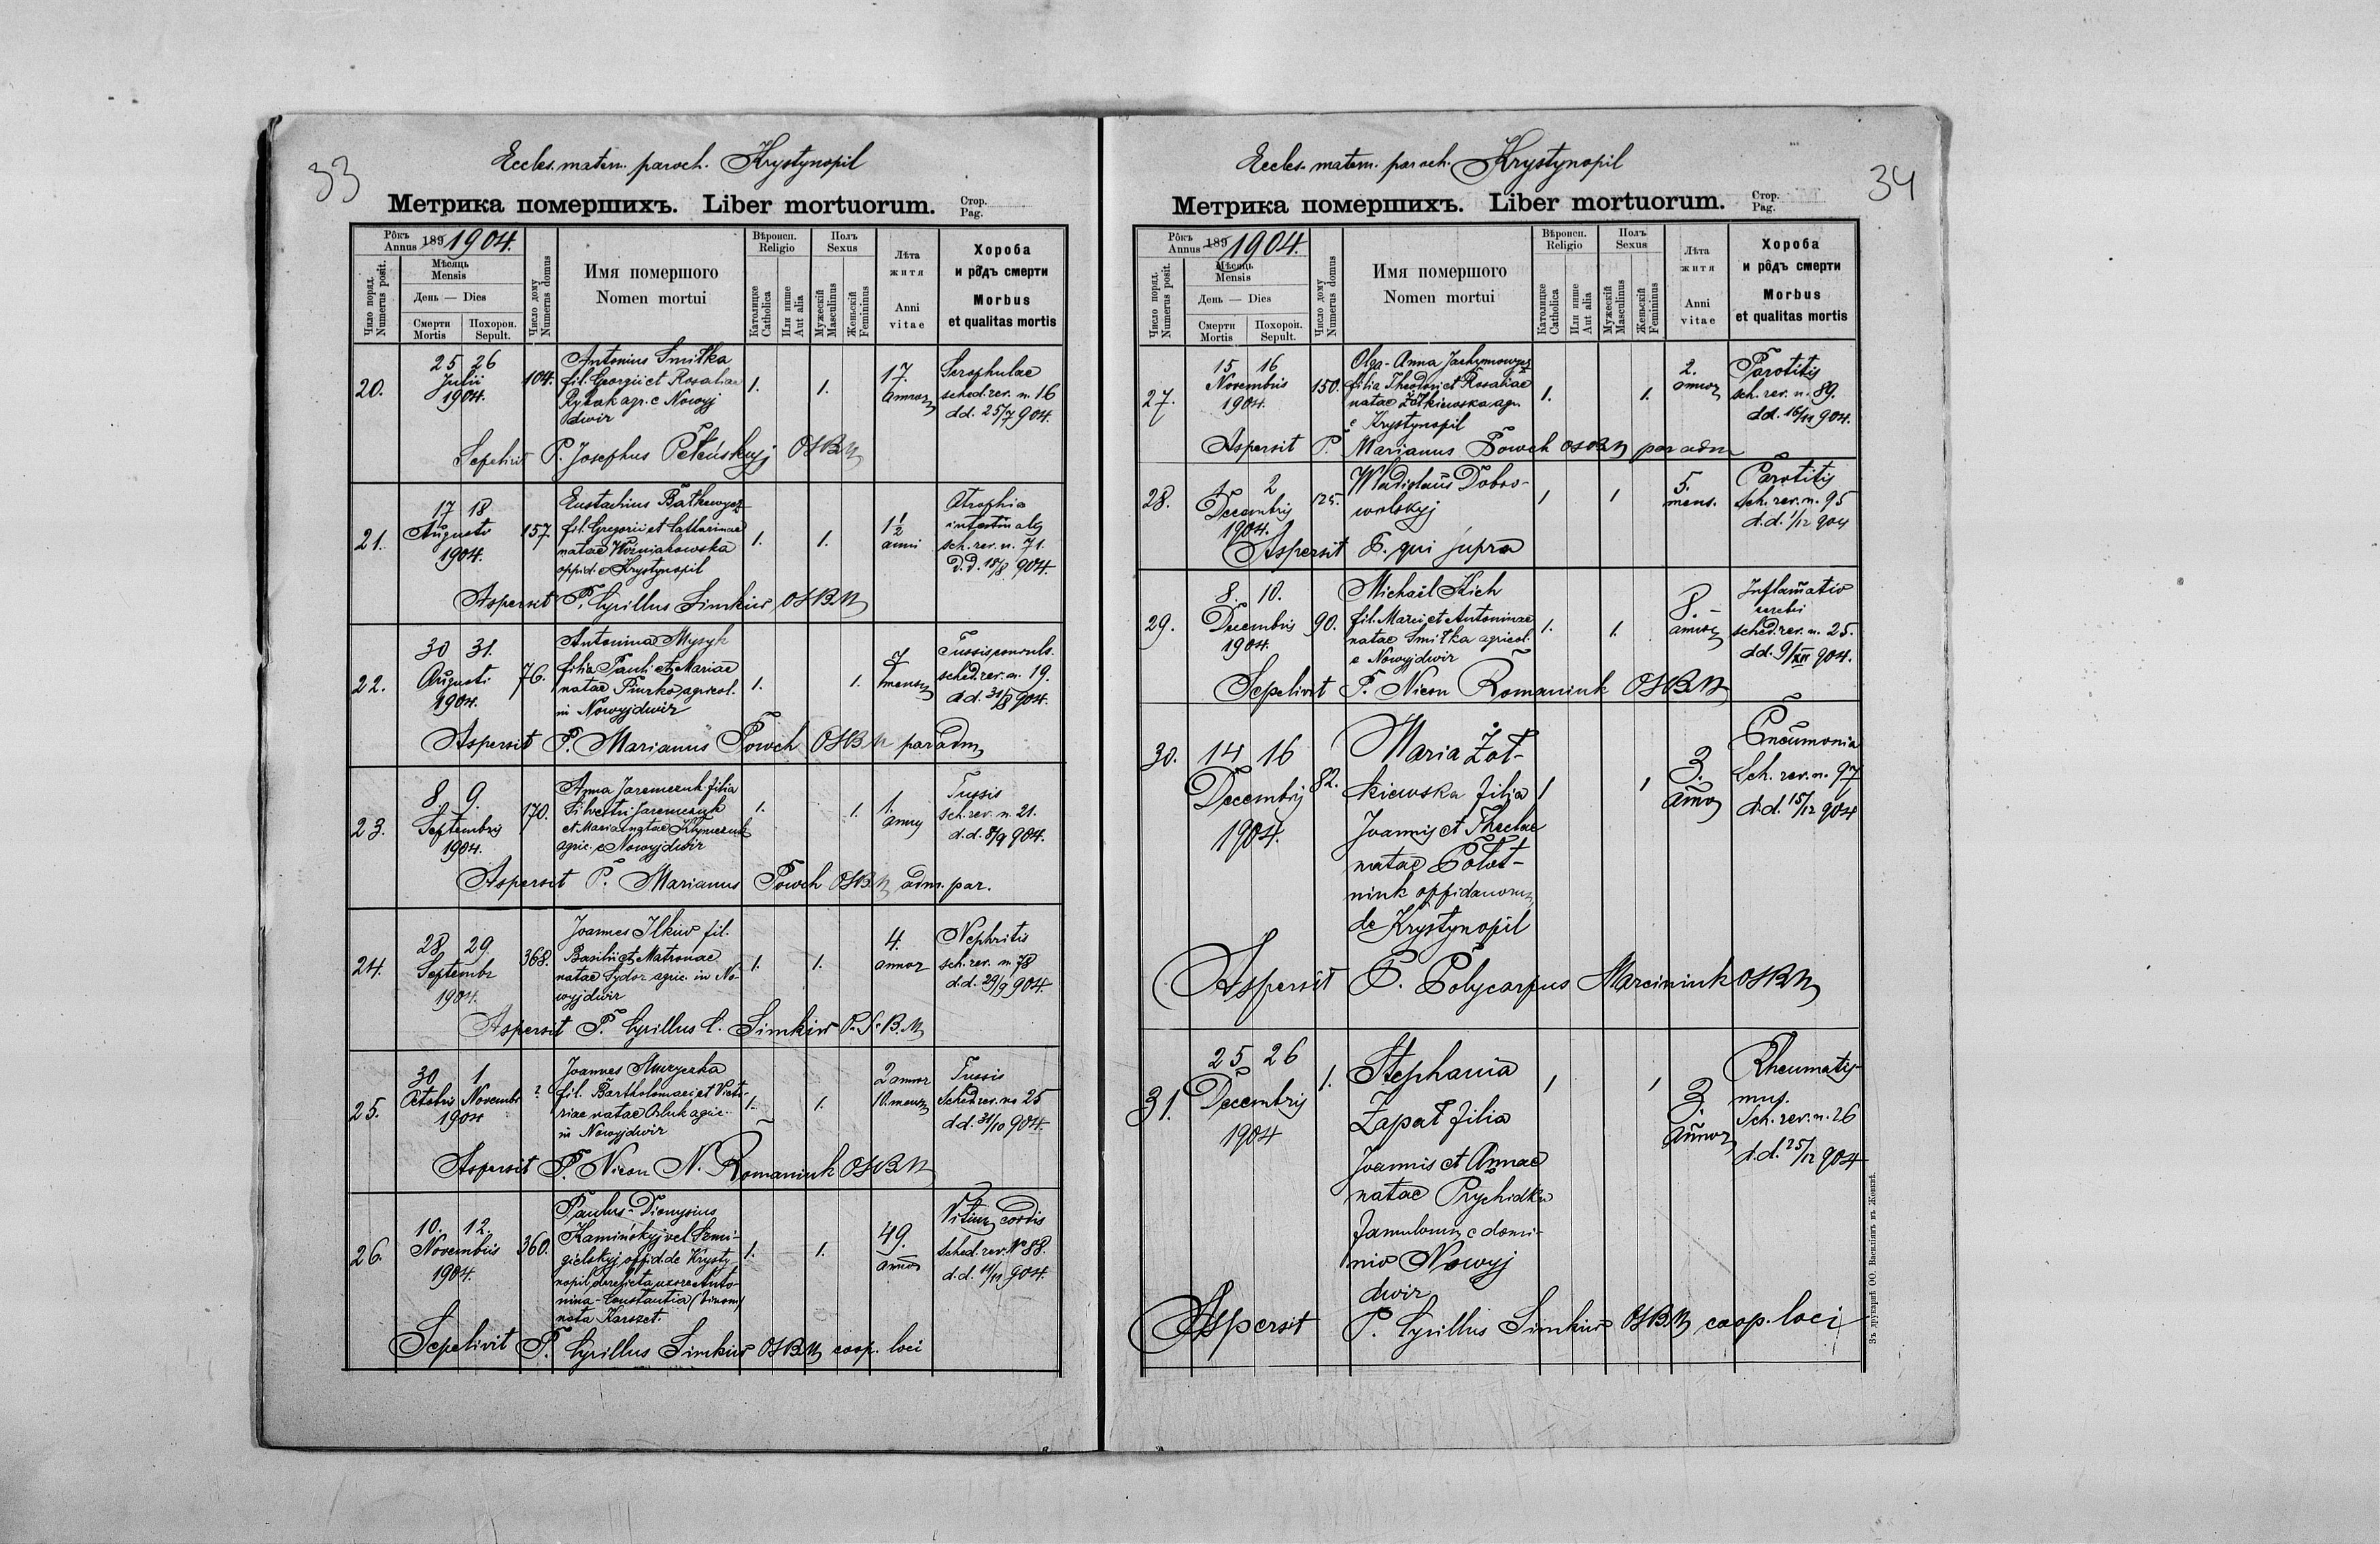 33
Eccles. matern. paroch. Krystynopil
Метрика помершихъ. Liber mortuorum.
Стор.
Pag.
Рôкъ
Annus 189 1904.
Мѣсяць
Mensis
День — Dies
Смерти
Mortis
Похорон.
Sepult.
Число поряд.
Numerus posit.
Число дому
Numerus domus
Имя помершого
Nomen mortui
Вѣроисп.
Religio
Католицке
Catholica
Или инше
Aut alia
Полъ
Sexus
Мужескій
Masculinus
Женьскій
Feminimus
Лѣта
житя
Anni
vitae
Хороба
и рôдъ смерти
Morbus
et qualitas mortis
20.
25 26
Julii
1904.
104.
Antonius Smitka
fil. Georgii et Rosaliae
Rybak agr. e Nowyj
dwir
1. 1.
17.
annor
Scrophulae
sched. rev. n. 16
dd. 25/7 904.
Sepelivit P. Josephus OSBM
21.
17 18
Augusti
1904.
157
Eustachius
fil. Gregorii et Catharinae
natae Woźniakowska
oppid. e Krystynopil
1. 1.
1 1/2
anni
Atrophia
sch. rev. n. 71.
d.d. 18/8 904.
Aspersit P. Cyrillus Simkiw OSBM
22.
30 31.
Augusti
1904.
76.
Antonina Mysyk
filia Pauli et Mariae
natae Fiurko agricol.
in Nowyjdwir
1. 1.
7
mens
Tussis convuls.
sched. rev. n. 19.
dd. 31/8 904.
Aspersit P. Marianus Powch OSBM par adm
23.
8 9.
Septembris
1904.
170.
Anna Jaremczuk filia
Silvestri Jaremczuk
et Maria natae Klymczuk
agric. e Nowyjdwir
1. 1.
1.
anni
Tussis
sch. rev. n. 21.
d.d. 8/9 904.
Aspersit P. Marianus Powch OSBM adm. par.
24.
28 29.
Septembr
1904.
368.
Joannes Ilkiw fil.
Basilii et Matronae
natae Sydor agric. in No-
wyjdwir
1. 1.
4.
annor
Nephritis
sch. rev. n. 78
d.d. 29/9 904.
Aspersit P. Cyrillus C. Simkiw
25.
30 1
Octobris Novembr
1904
?
Joannes Muzyczka
fil. Bartholomaei et Victo-
riae natae agric.
in Nowyjdwir
1. 1.
2 annor
10. mens
Tussis
Sched rev. no 25
dd. 31/10 904.
Aspersit P. Nicon N. Romaniuk OSBM
26.
10. 12.
Novembris
1904.
360.
Paulus-Dionysius
Kamińskyj vel Semi-
gielskyj oppid. de Krysty
nopil derelicta uxore Anto-
nina-Constantia
nata Karszet.
1. 1.
49.
annor
Vitium cordis
sched. rev. № 88.
d.d. 11/11 904.
Sepelivit P. Cyrillus Simkiw OSBM coop. loci
34
Eccles. matern. paroch. Krystynopil
Метрика помершихъ. Liber mortuorum.
Стор.
Pag.
Рôкъ
Annus 189 1904.
Мѣсяць
Mensis
День — Dies
Смерти
Mortis
Похорон.
Sepult.
Число поряд.
Numerus posit.
Число дому
Numerus domus
Имя помершого
Nomen mortui
Вѣроисп.
Religio
Католицке
Catholica
Или инше
Aut alia
Полъ
Sexus
Мужескій
Masculinus
Женьскій
Feminimus
Лѣта
житя
Anni
vitae
Хороба
и рôдъ смерти
Morbus
et qualitas mortis
27.
15 16
Novembris
1904.
150.
Olga-Anna Jachymowycz
filia Theodori et Rosaliae
natae Żołkiewska agr.
e Krystynopil
1. 1.
2.
annor
Parotitis
sch. rev. n. 89.
dd. 16/11 904.
Aspersit P. Marianus Powch OSBM par adm
28.
1 2
Decembris
1904.
125.
Wladislaus Dobro-
wolskyj
1 1
5.
mens.
Parotitis
Sch. rev. n. 95
d.d. 1/12 904
Aspersit P. qui supra
29.
8. 10.
Decembris
1904.
90.
Michaël Kich
fil. Marci et Antoninae
natae Smitka agricol.
e Nowyjdwir
1. 1.
8.-
annor
Inflamatio
cerebri
sched. rev. n. 25.
dd. 9/XII 904.
Sepelivit P. Nicon Romaniuk OSBM
30.
14 16
Decembris
1904.
82.
Maria Żoł-
kiewska filia
Joannis et Theclae
natae Połot-
niuk oppidanorum
de Krystynopil
1 1
3.
annor
Pneumonia
Sch. rev. n. 97
d.d. 15/12 904
Aspersit P. Polycarpus Marciniuk OSBM
31.
25 26
Decembris
1904
1.
Stephania
Zapał filia
Joannis et Annae
natae Prychidko
famulorum e domi-
nio Nowyj
dwir
1 1
3.
annor
Rheumatis-
mus.
Sch. rev. n. 26
d.d. 25/12 904
Aspersit P. Cyrillus Simkiw OSBM coop. loci
Зъ друкарнѣ ОО. Василіянъ въ Жовквѣ.